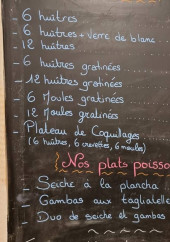 - 6 huîtres
- 6 huîtres + verre de blanc..
- 12 huîtres
- 6 huîtres gratinées
- 12 huîtres gratinées
- 6 Moules gratinées
12 Moules gratinées
- Plateau de Coquillages
(6 huîtres, 6 crevettes, 6 moules)
Nos plats poisso
- Seiche à la plancha
- Gambas aux tagliatelle
- Duo de seiche et gambas